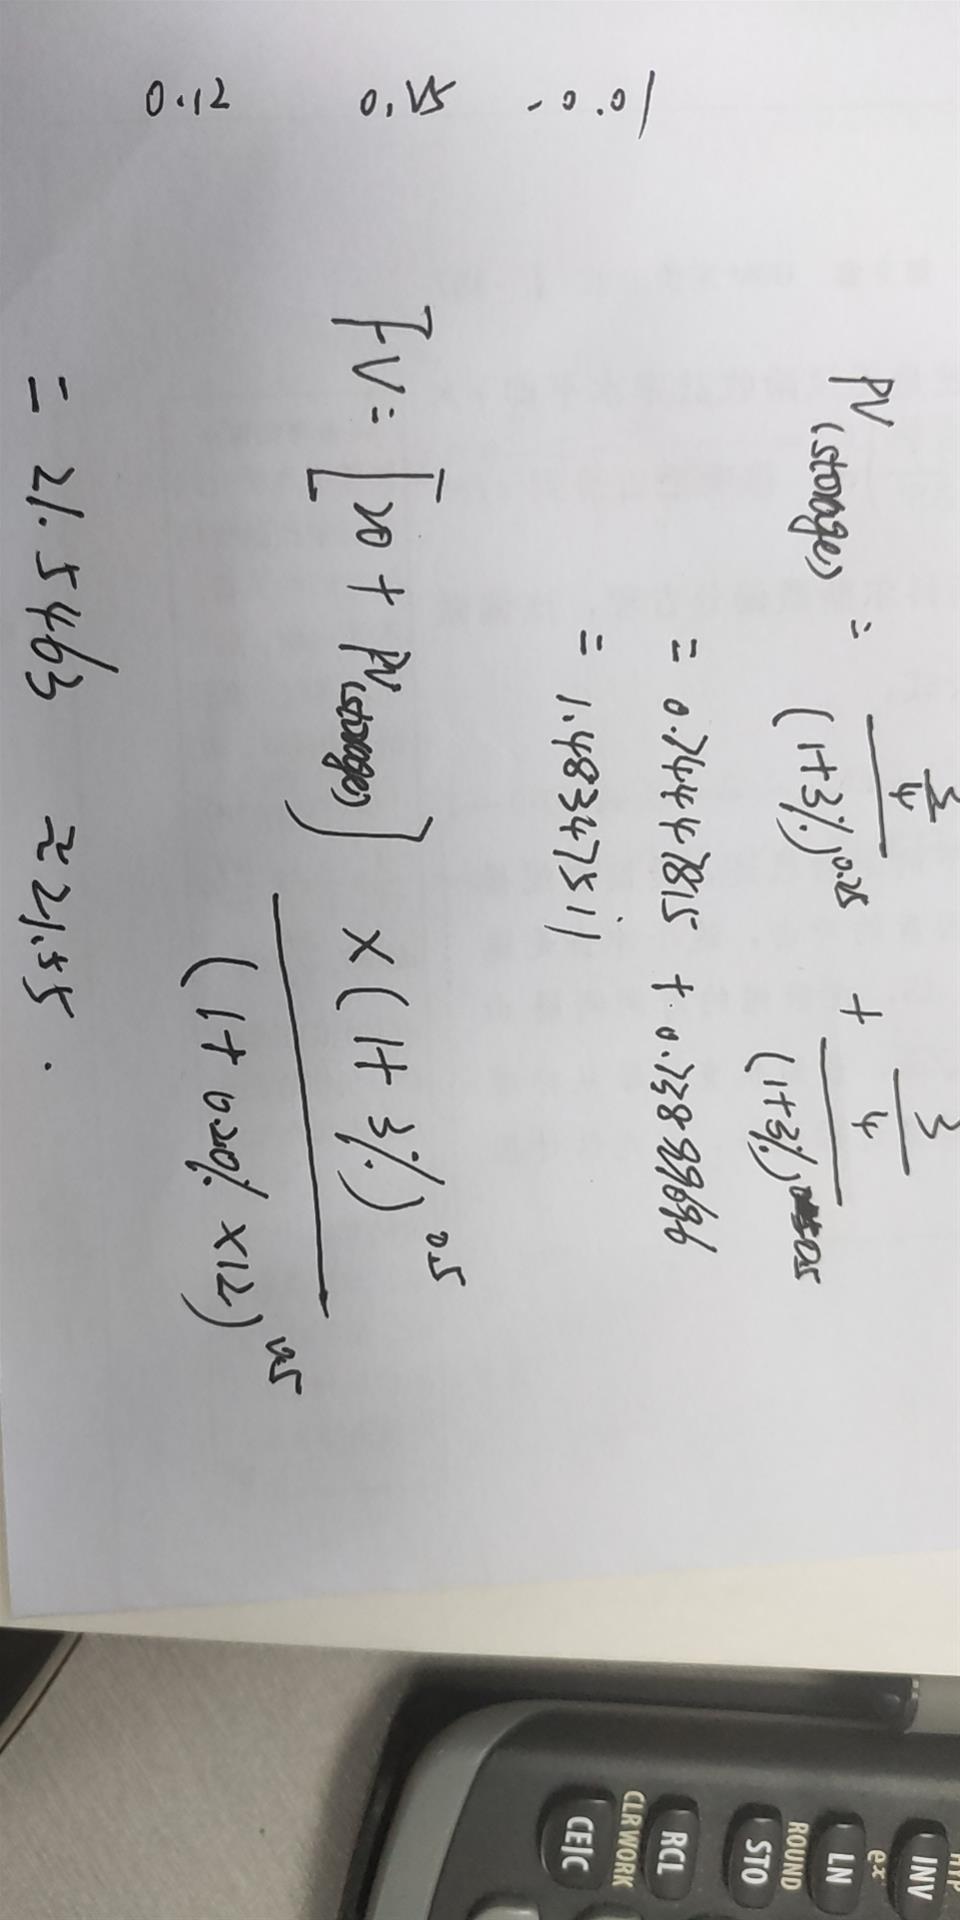 PV(storage) = 3/4 / (1+3%)^0.25 + 3/4 / (1+3%)^0.5
= 0.74447815 + 0.73899696
= 1.48347511
FV = [20 + PV(storage)] × (1+3%)^0.5 / (1+0.20% × 12)^0.5
= 21.5463 ≈ 21.55.
0.01
0.25
0.12
INV
e^x
LN
ROUND
STO
RCL
CLR WORK
CE|C